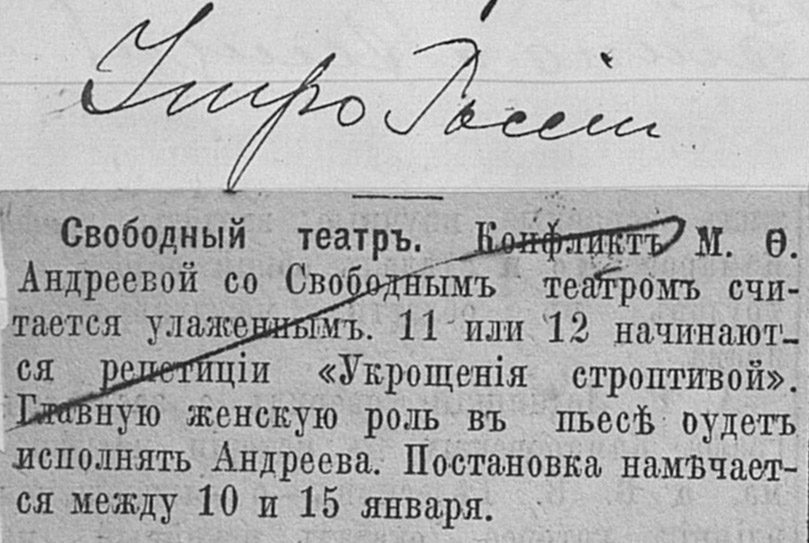 Утро Россіи
Свободный театръ. Конфликтъ М. Ѳ.
Андреевой со Свободнымъ театромъ счи-
тается улаженнымъ. 11 или 12 начинают-
ся репетиціи «Укрощенія строптивой».
Главную женскую роль въ пьесѣ оудетъ
исполнять Андреева. Постановка намѣчает-
ся между 10 и 15 января.